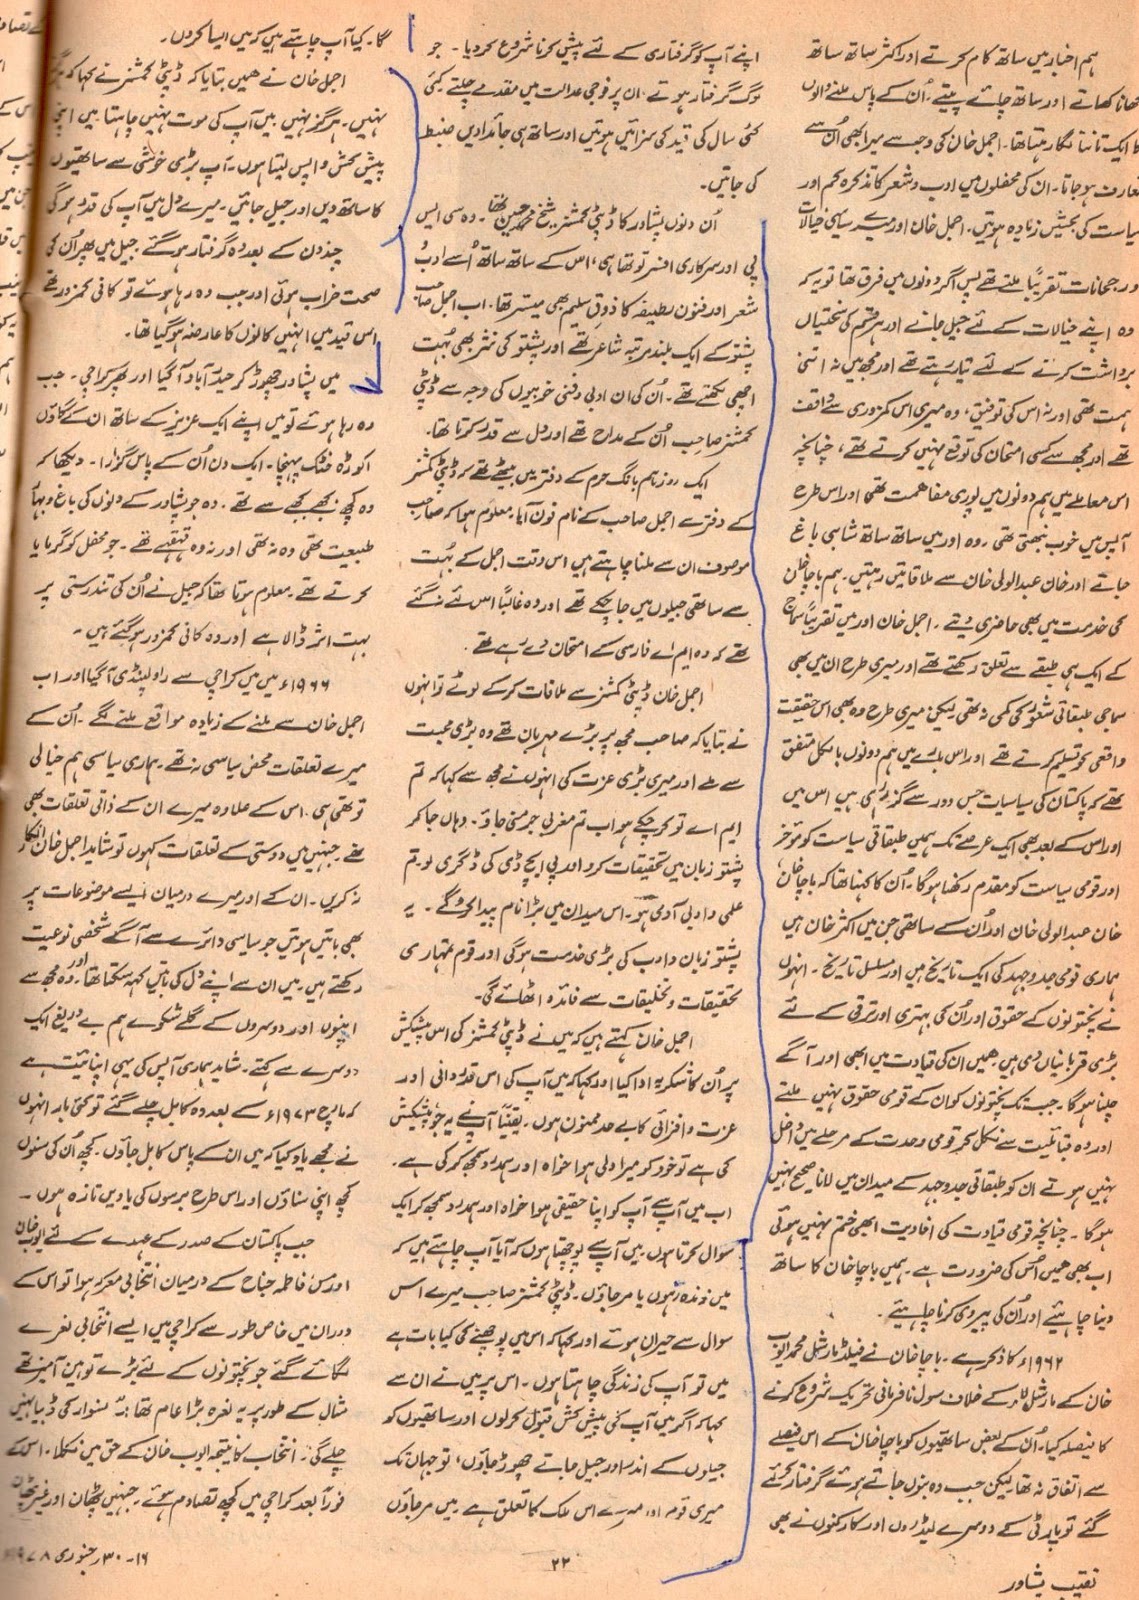 ہم اخبار میں ساتھ کام کرتے اور اکثر ساتھ ساتھ
کھانا کھاتے اور ساتھ چائے پیتے۔ اُن کے پاس ملنے والوں
کا ایک تانتا لگا رہتا تھا۔ اجمل خان کی وجہ سے میرا بھی اُن سے
تعارف ہو جاتا۔ ان کی محفلوں میں ادب و شعر کا تذکرہ کم اور
سیاست کی بحثیں زیادہ ہوتیں۔ اجمل خان اور میرے سیاسی خیالات
ور رجحانات تقریباً ملتے تھے بس اگر دونوں میں فرق تھا تو یہ کہ
وہ اپنے خیالات کے لئے جیل جانے اور ہر قسم کی سختیاں
برداشت کرنے کے لئے تیار رہتے تھے اور مجھ میں نہ اتنی
ہمت تھی اور نہ اس کی توفیق۔ وہ میری اس کمزوری سے واقف
تھے اور مجھ سے کسی امتحان کی توقع نہیں کرتے تھے، چنانچہ
اس معاملے میں ہم دونوں میں پوری مفاہمت تھی اور اس طرح
آپس میں خوب نبھتی تھی۔ وہ اور میں ساتھ ساتھ شاہی باغ
جاتے اور خان عبدالولی خان سے ملاقاتیں رہتیں۔ ہم باچا خان
کی خدمت میں بھی حاضری دیتے۔ اجمل خان اور میں تقریباً سماج
کے ایک ہی طبقے سے تعلق رکھتے تھے اور میری طرح ان میں بھی
سماجی طبقاتی شعور کی کمی نہ تھی لیکن میری طرح وہ بھی اس حقیقت
واقعی کو تسلیم کرتے تھے اور اس بارے میں ہم دونوں بالکل متفق
تھے کہ پاکستان کی سیاسیات جس دور سے گزر رہی ہیں اس میں
اور اس کے بعد بھی ایک عرصے تک ہمیں طبقاتی سیاست کو مؤخر
اور قومی سیاست کو مقدم رکھنا ہو گا۔ اُن کا کہنا تھا کہ باچا خان،
خان عبدالولی خان اور اُن کے ساتھی جن میں اکثر خان ہیں
ہماری قومی جدوجہد کی ایک تاریخ ہیں اور مسلسل تاریخ۔ انہوں
نے پختونوں کے حقوق اور اُن کی بہتری اور ترقی کے لئے
بڑی قربانیاں دی ہیں ہمیں ان کی قیادت میں ابھی اور آگے
چلنا ہو گا۔ جب تک پختونوں کو ان کے قومی حقوق نہیں ملتے
اور وہ قبائلیت سے نکل کر قومی وحدت کے مرحلے میں داخل
نہیں ہوتے ان کو طبقاتی جدوجہد کے میدان میں لانا صحیح نہیں
ہو گا۔ چنانچہ قومی قیادت کی افادیت ابھی ختم نہیں ہوئی
اب بھی ہمیں اُس کی ضرورت ہے۔ ہمیں باچا خان کا ساتھ
دینا چاہئے اور اُن کی پیروی کرنا چاہئے۔
۱۹۶۲ء کا ذکر ہے۔ باچا خان نے فیلڈ مارشل محمد ایوب
خان کے مارشل لاء کے خلاف سول نافرمانی تحریک شروع کرنے
کا فیصلہ کیا۔ اُن کے بعض ساتھیوں کو باچا خان کے اس فیصلے
سے اتفاق نہ تھا لیکن جب وہ بنوں جاتے ہوئے گرفتار کر لئے
گئے تو پارٹی کے دوسرے لیڈروں اور کارکنوں نے بھی
اپنے آپ کو گرفتاری کے لئے پیش کرنا شروع کر دیا۔ جو
لوگ گرفتار ہوتے، ان پر فوجی عدالت میں مقدمے چلتے کئی
کئی سال کی قید کی سزائیں ہوتیں اور ساتھ ہی جائدادیں ضبط
کی جاتیں۔
اُن دنوں پشاور کا ڈپٹی کمشنر شیخ محمد حسین تھا۔ وہ سی ایس
پی اور سرکاری افسر تو تھا ہی، اس کے ساتھ ساتھ اُسے ادب و
شعر اور فنون لطیفہ کا ذوق سلیم بھی میسر تھا۔ اب اجمل صاحب
پشتو کے ایک بلند مرتبہ شاعر تھے اور پشتو کی نثر بھی بہت
اچھی لکھتے تھے۔ اُن کی ان ادبی و فنی خوبیوں کی وجہ سے ڈپٹی
کمشنر صاحب اُن کے مداح تھے اور دل سے قدر کرتا تھا۔
ایک روز ہم بانگ حرم کے دفتر میں بیٹھے تھے کہ ڈپٹی کمشنر
کے دفتر سے اجمل صاحب کے نام فون آیا۔ معلوم ہوا کہ صاحب
موصوف ان سے ملنا چاہتے ہیں اس وقت اجمل کے بہت
سے ساتھی جیلوں میں جا چکے تھے اور وہ غالباً اس لئے نہ گئے
تھے کہ وہ ایم اے فارسی کے امتحان دے رہے تھے۔
اجمل خان ڈپٹی کمشنر سے ملاقات کر کے لوٹے تو انہوں
نے بتایا کہ صاحب مجھ پر بڑے مہربان تھے وہ بڑی محبت
سے ملے اور میری بڑی عزت کی انہوں نے مجھ سے کہا کہ تم
ایم اے تو کر چکے ہو اب تم مغربی جرمنی جاؤ۔ وہاں جا کر
پشتو زبان میں تحقیقات کرو اور پی ایچ ڈی کی ڈگری لو۔ تم
علمی و ادبی آدمی ہو۔ اس میدان میں بڑا نام پیدا کرو گے۔ یہ
پشتو زبان و ادب کی بڑی خدمت ہو گی اور قوم تمہاری
تحقیقات و تخلیقات سے فائدہ اٹھائے گی۔
اجمل خان کہتے ہیں کہ میں نے ڈپٹی کمشنر کی اس پیشکش
پر اُن کا شکریہ ادا کیا اور کہا کہ میں آپ کی اس قدر دانی اور
عزت و افزائی کا بے حد ممنون ہوں۔ یقیناً آپ نے یہ جو پیشکش
کی ہے تو خود کو میرا دلی ہوا خواہ اور ہمدرد سمجھ کر کی ہے۔
اب میں آپ سے آپ کو اپنا حقیقی ہوا خواہ اور ہمدرد سمجھ کر ایک
سوال کرتا ہوں۔ میں آپ سے پوچھتا ہوں کہ آیا آپ چاہتے ہیں کہ
میں زندہ رہوں یا مر جاؤں۔ ڈپٹی کمشنر صاحب میرے اس
سوال سے حیران ہوئے اور کہا کہ اس میں پوچھنے کی کیا بات ہے
میں تو آپ کی زندگی چاہتا ہوں۔ اس پر میں نے ان سے
کہا کہ اگر میں آپ کی پیش کش قبول کر لوں اور ساتھیوں کو
جیلوں کے اندر اور جیل جاتے چھوڑ جاؤں، تو جہاں تک
میری قوم اور میرے اس ملک کا تعلق ہے۔ میں مر جاؤں
گا۔ کیا آپ چاہتے ہیں کہ میں ایسا کروں۔
اجمل خان نے ہمیں بتایا کہ ڈپٹی کمشنر نے کہا کہ ہرگز
نہیں۔ ہرگز نہیں۔ میں آپ کی موت نہیں چاہتا۔ میں اپنی
پیش کش واپس لیتا ہوں۔ آپ بڑی خوشی سے ساتھیوں
کا ساتھ دیں اور جیل جائیں۔ میرے دل میں آپ کی قدر ہو گی
چند دن کے بعد وہ گرفتار ہو گئے۔ جیل میں پھر اُن کی
صحت خراب ہوئی اور جب وہ رہا ہوئے تو کافی کمزور تھے
اس قید میں انہیں کانوں کا عارضہ ہو گیا تھا۔
میں پشاور چھوڑ کر حیدرآباد آ گیا اور پھر کراچی۔ جب
وہ رہا ہوئے تو میں اپنے ایک عزیز کے ساتھ ان کے گاؤں
اکوڑہ خٹک پہنچا۔ ایک دن اُن کے پاس گزارا۔ دیکھا کہ
وہ کچھ بجھے بجھے سے تھے۔ وہ جو پشاور کے دنوں کی باغ و بہار
طبیعت تھی وہ نہ تھی اور نہ وہ قہقہے تھے۔ جو محفل کو گرمایا
کرتے تھے۔ معلوم ہوتا تھا کہ جیل نے اُن کی تندرستی پر
بہت اثر ڈالا ہے اور وہ کافی کمزور ہو گئے ہیں۔
۱۹۶۶ء میں میں کراچی سے راولپنڈی آ گیا اور اب
اجمل خان سے ملنے کے زیادہ مواقع ملنے لگے۔ اُن کے
میرے تعلقات محض سیاسی نہ تھے۔ ہماری سیاسی ہم خیالی
تو تھی ہی۔ اس کے علاوہ میرے ان کے ذاتی تعلقات بھی
تھے۔ جنہیں میں دوستی کے تعلقات کہوں تو شاید اجمل خان انکار
نہ کریں۔ ان کے اور میرے درمیان ایسے موضوعات پر
بھی باتیں ہوتیں جو سیاسی دائرے سے آگے شخصی نوعیت
رکھتے ہیں۔ میں ان سے اپنے دل کی باتیں کہہ سکتا تھا اور وہ مجھ سے
اپنوں اور دوسروں کے گلے شکوے ہم بے دریغ ایک
دوسرے سے کہتے۔ شاید ہماری آپس کی یہی اپنائیت ہے
کہ مارچ ۱۹۷۳ء کے بعد وہ کابل چلے گئے تو کئی بار انہوں
نے مجھے یاد کیا کہ میں ان کے پاس کابل جاؤں۔ کچھ اُن کی سنوں
کچھ اپنی سناؤں اور اس طرح برسوں کی یادیں تازہ ہوں۔
جب پاکستان کے صدر کے عہدے کے لئے ایوب خان
اور مس فاطمہ جناح کے درمیان انتخابی معرکہ ہوا تو اس کے
دوران میں خاص طور سے کراچی میں ایسے انتخابی نعرے
لگائے گئے جو پختونوں کے لئے بڑے توہین آمیز تھے
مثال کے طور پر یہ نعرہ بڑا عام تھا: نسوار کی ڈبیا نہیں
چلے گی۔ انتخاب کا نتیجہ ایوب خان کے حق میں نکلا۔ اس کے
فوراً بعد کراچی میں کچھ تصادم ہوئے۔ جنہیں پٹھان اور غیر پٹھان
نقیب پشاور
۲۲
۱۶-۳۰ر جنوری ۱۹۷۸ء